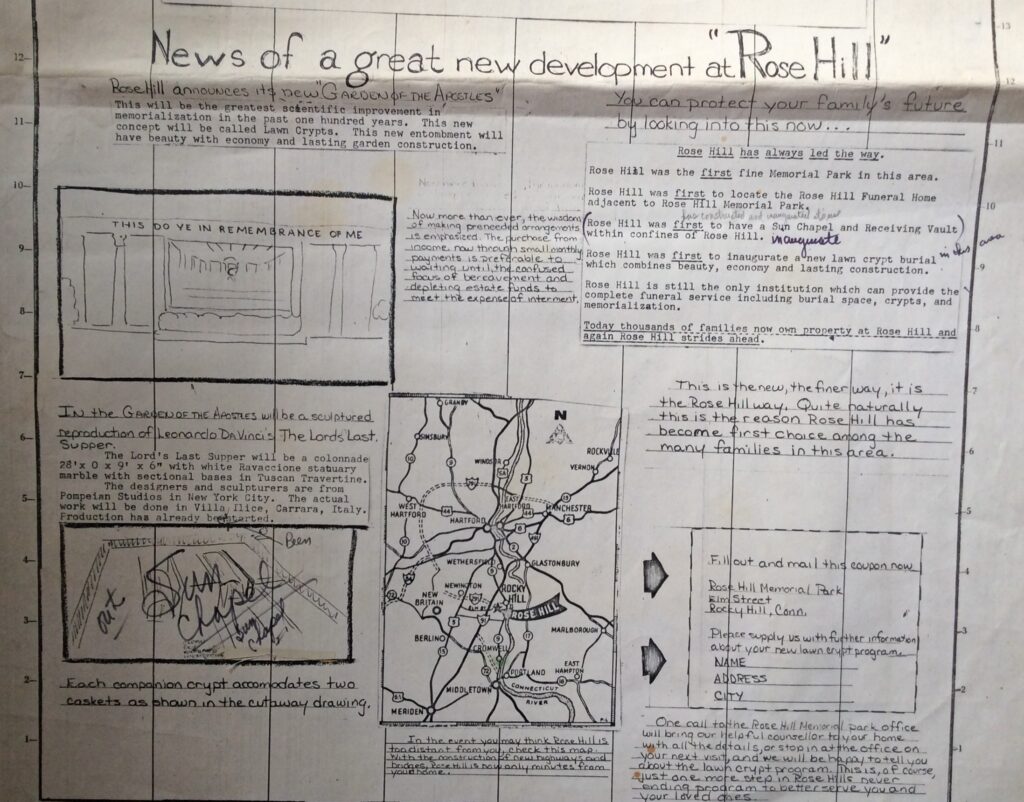 News of a great new development at "Rose Hill"
Rose Hill announces its new "GARDEN OF THE APOSTLES"
This will be the greatest scientific improvement in
memorialization in the past one hundred years. This new
concept will be called Lawn Crypts. This new entombment will
have beauty with economy and lasting garden construction.
You can protect your family's future
by looking into this now...
Rose Hill has always led the way.
Rose Hill was the first fine Memorial Park in this area.
Rose Hill was first to locate the Rose Hill Funeral Home
adjacent to Rose Hill Memorial Park.
Rose Hill was first to have a Sun Chapel and Receiving Vault
within confines of Rose Hill. inaugurate
Rose Hill was first to inaugurate a new lawn crypt burial in this area
which combines beauty, economy and lasting construction.
Rose Hill is still the only institution which can provide the
complete funeral service including burial space, crypts, and
memorialization.
Today thousands of families now own property at Rose Hill and
again Rose Hill strides ahead.
THIS DO YE IN REMEMBRANCE OF ME
Now more than ever, the wisdom
of making preneeded arrangements
is emphasized. The purchase from
income now through small monthly
payments is preferable to
waiting until the confused
focus of bereavement and
depleting estate funds to
meet the expense of interment.
In the GARDEN OF THE APOSTLES will be a sculptured
reproduction of Leonardo DaVinci's The Lords Last
Supper.
The Lord's Last Supper will be a colonnade
28'x 0 x 9' x 6" with white Ravaccione statuary
marble with sectional bases in Tuscan Travertine.
The designers and sculpturers are from
Pompeian Studios in New York City. The actual
work will be done in Villa Ilice, Carrara, Italy.
Production has already started.
Been
out
Sun
Chapel
Sun
Chapel
Each companion crypt accomodates two
caskets as shown in the cutaway drawing.
GRANBY
N
SIMSBURY
WINDSOR
ROCKVILLE
VERNON
WEST
HARTFORD
EAST
HARTFORD
MANCHESTER
HARTFORD
WETHERSFIELD
GLASTONBURY
NEWINGTON
ROCKY
HILL
NEW
BRITAIN
ELM ST
ROSE HILL
BERLIN
MARLBOROUGH
CROMWELL
PORTLAND
EAST
HAMPTON
MIDDLETOWN
CONNECTICUT
RIVER
MERIDEN
In the event you may think Rose Hill is
too distant from you, check this map.
With the construction of new highways and
bridges, Rose Hill is now only minutes from
your home.
This is the new, the finer way, it is
the Rose Hill way. Quite naturally
this is the reason Rose Hill has
become first choice among the
many families in this area.
Fill out and mail this coupon now
Rose Hill Memorial Park
Elm Street
Rocky Hill, Conn.
Please supply us with further information
about your new lawn crypt program.
NAME
ADDRESS
CITY
One call to the Rose Hill Memorial park office
will bring our helpful counsellor to your home
with all the details, or stop in at the office on
your next visit, and we will be happy to tell you
about the lawn crypt program. This is, of course,
just one more step in Rose Hills never
ending program to better serve you and
your loved ones.